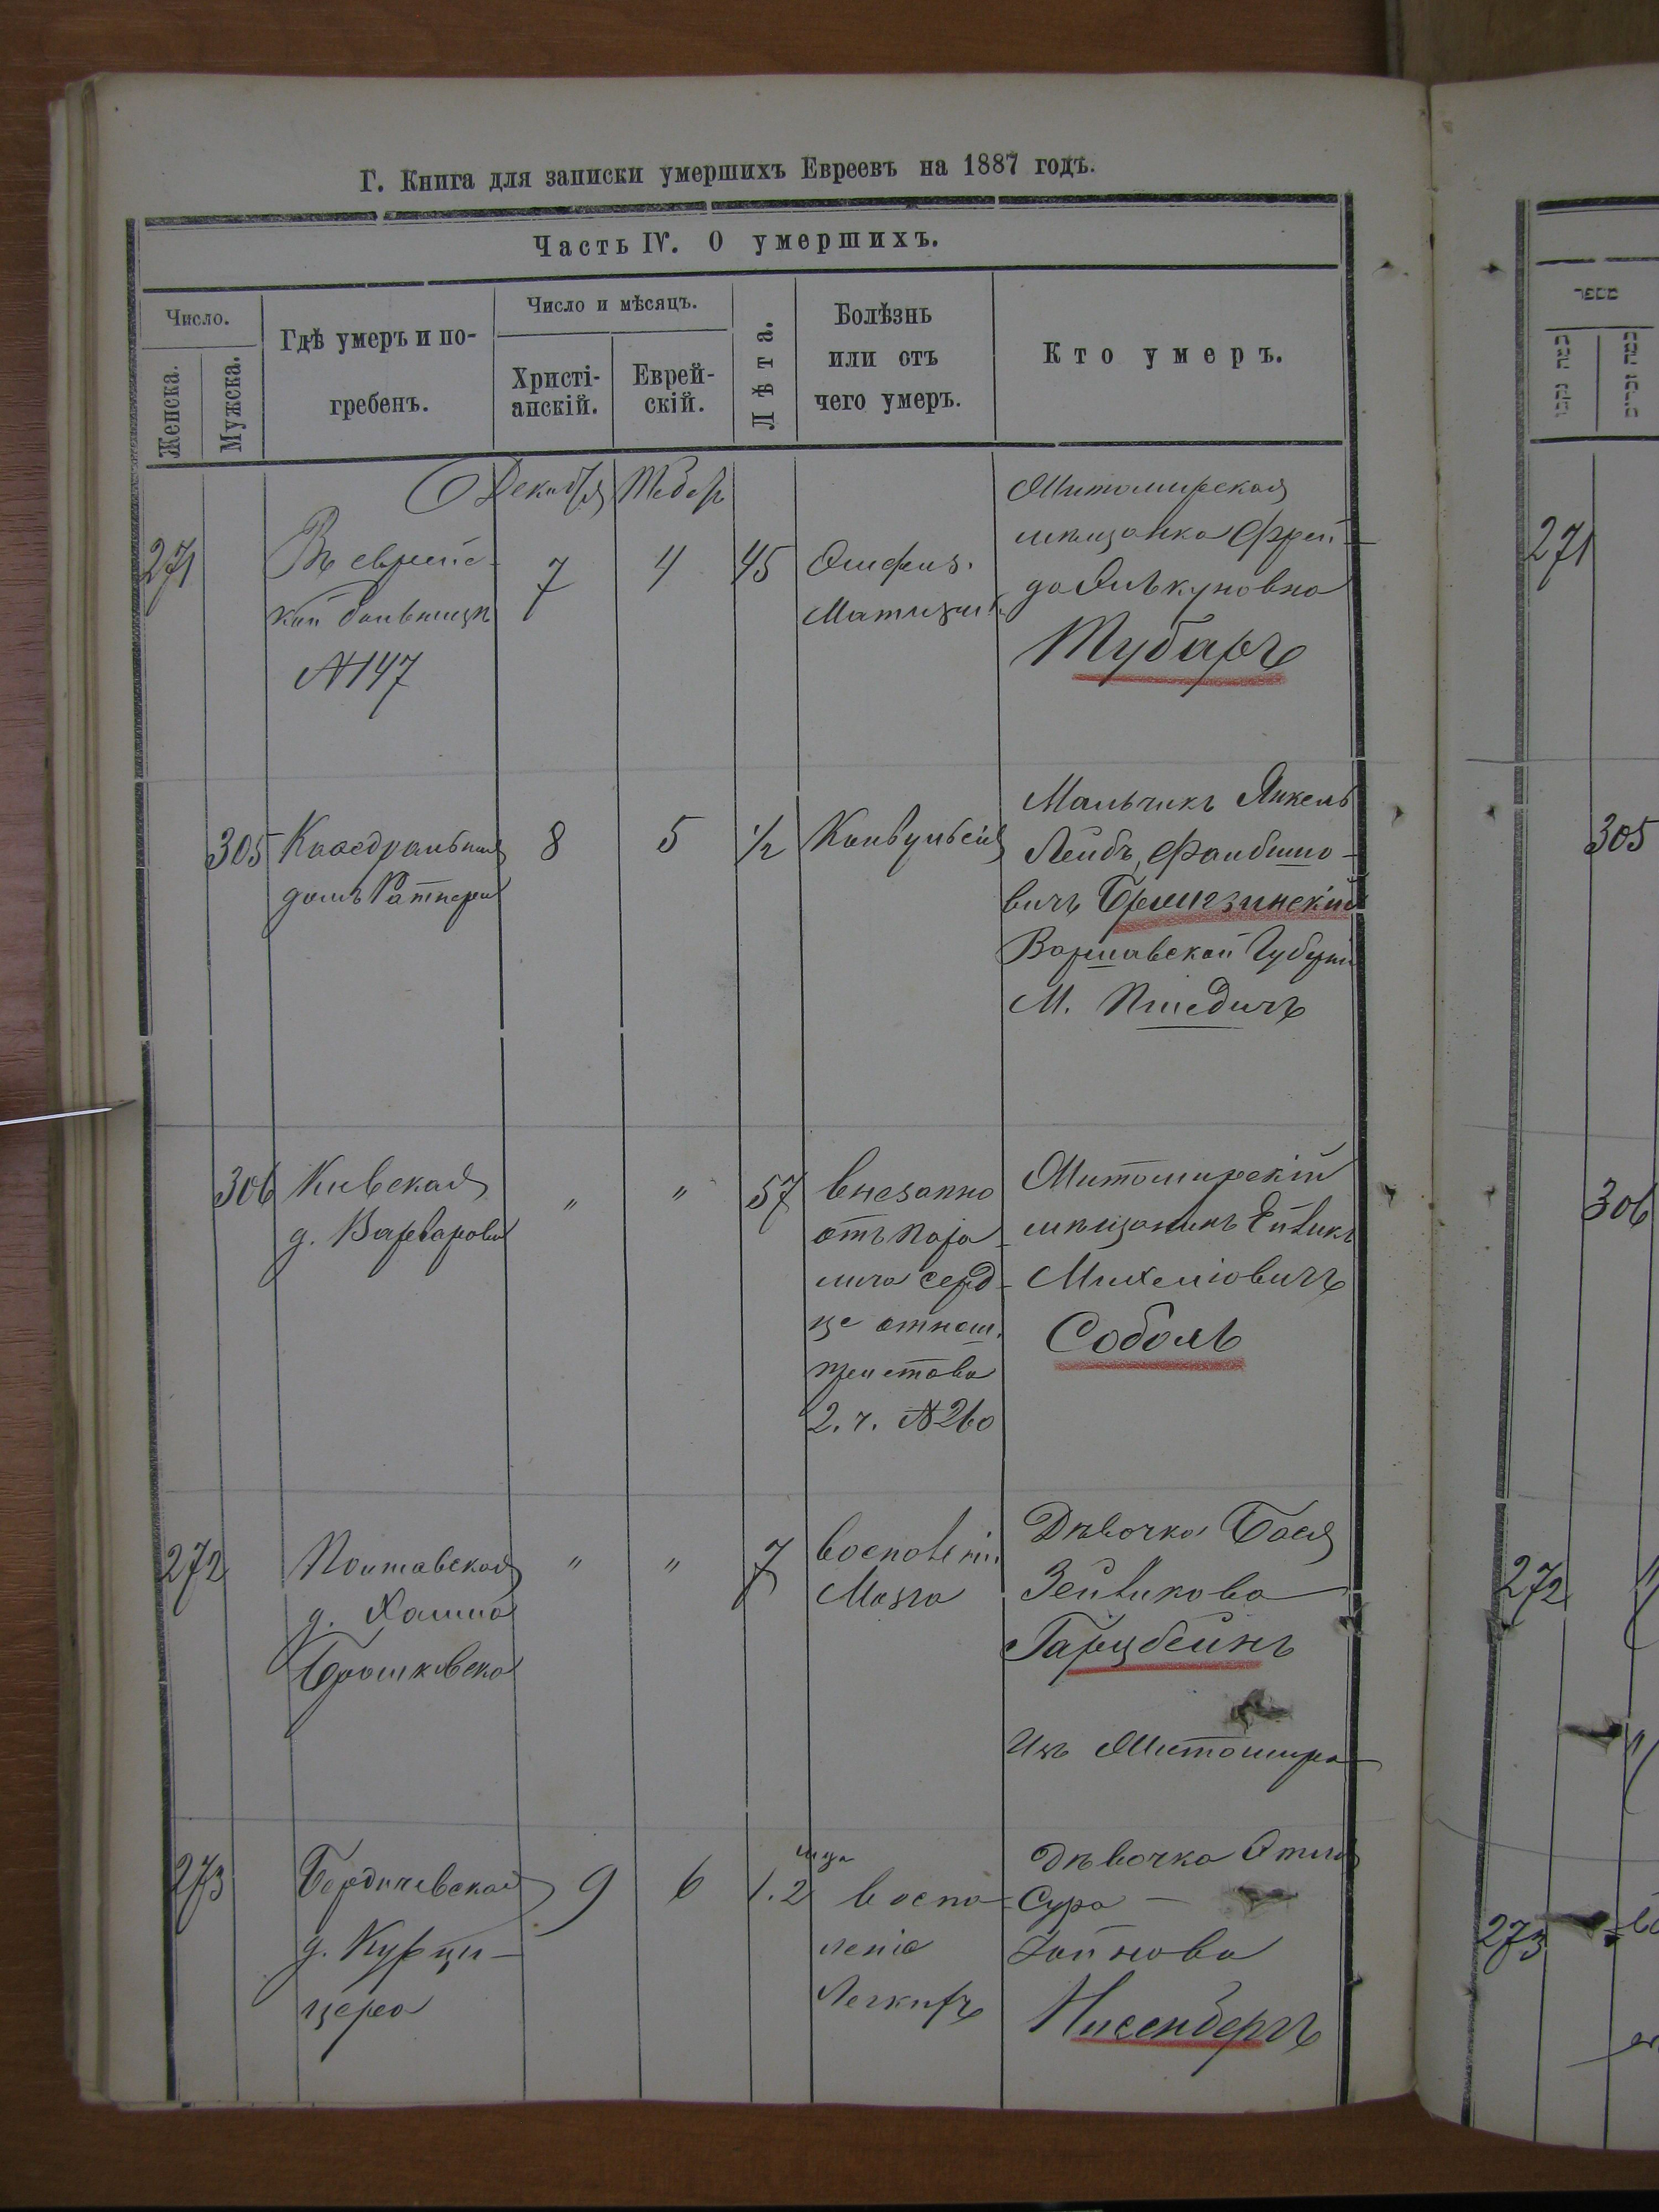 Г. Книга для записки умершихъ Евреевъ на 1887 годъ.
Часть IV. О умершихъ.
Число.
Женска.
Мужска.
Гдѣ умеръ и по-
гребенъ.
Число и мѣсяцъ.
Христі-
анскій.
Еврей-
скій.
Лѣта.
Болѣзнь
или отъ
чего умеръ.
Кто умеръ.
Декабря
271
Въ еврейс-
кой больницѣ
№ 147
7
4
45
Житомирская
мѣщанка Фрей-
да
Тубаръ
305
Каѳедральная
домъ Ратнера
8
5
1/2
Конвульсія
Мальчикъ Янкель
Лейбъ Файбишо-
вичъ
Варшавской
М.
306
Кіевская
д. Варварова
"
"
57
внезапно
отъ пара-
лича серд-
це отнош.
пристава
2. ч. № 260
Житомирскій
мѣщанинъ
Михелювичъ
Соболь
272
Полтавская
д.
"
"
7
Мозга
Дѣвочка Бася
Зейликова
Гарцбейнъ
Изъ Житомира
273
Бердичевская
д. Курци-
цера
9
6
1.2
воспа-
леніе
Легкихъ
Дѣвочка
Сура
Нисенбергъ
מספר
271
305
306
272
273